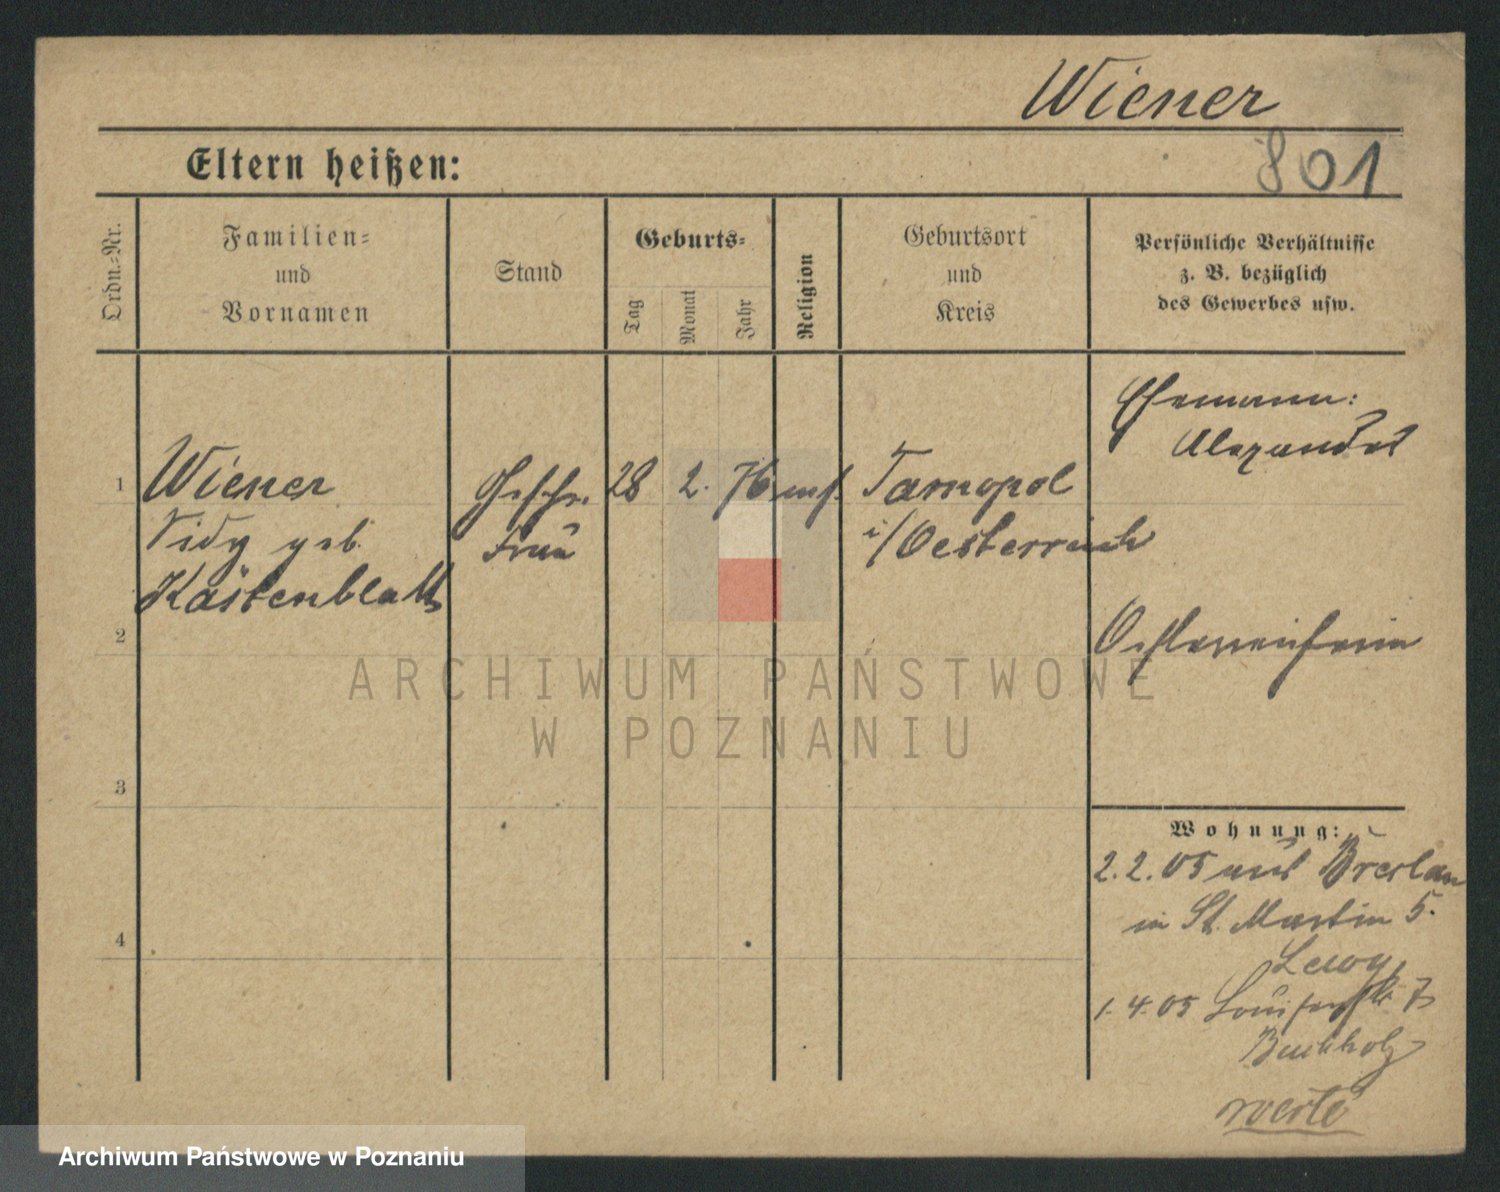 Wiener
801
Eltern heißen:
Ordn.-Nr.
Familien-
und
Vornamen
Stand
Geburts-
Tag
Monat
Jahr
Religion
Geburtsort
und
Kreis
Persönliche Verhältnisse
z. B. bezüglich
des Gewerbes usw.
Ehemann:
Alexander
1
Wiener
geb.
Kastenblatt
Frau
28
2.
76
mos.
Tarnopol
i/Oesterreich
2
Oesterreicherin
3
4
Wohnung:
2.2.05 aus Breslau
in St. Martin 5.
Lewy
1.4.05 Louisenstr 7
Buchholz
ARCHIWUM PAŃSTWOWE
W POZNANIU
Archiwum Państwowe w Poznaniu